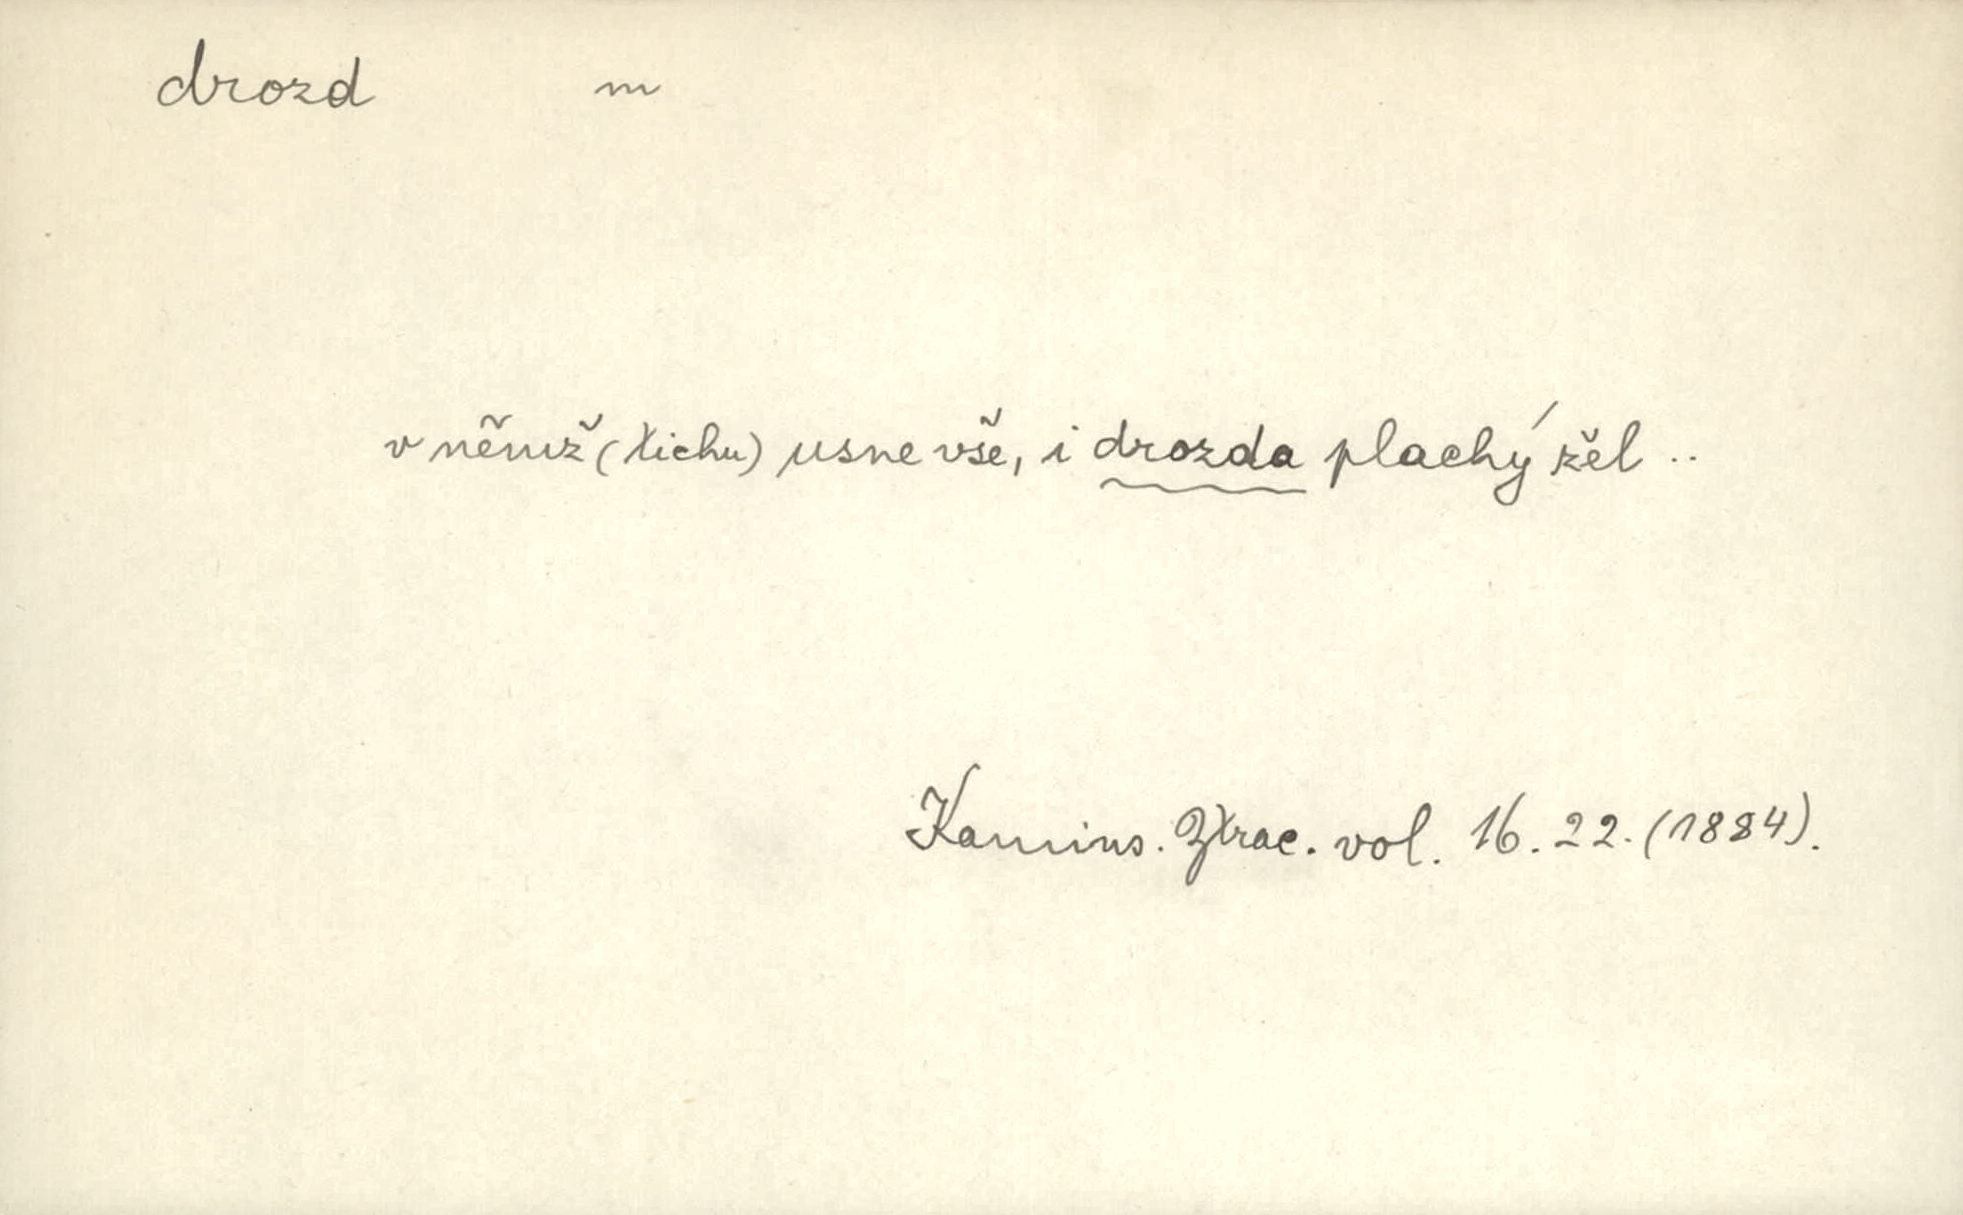 drozd m
v němž (tichu) usne vše, i drozda plachý žel ..
Kamins. Ztrac. vol. 16. 22. (1884).